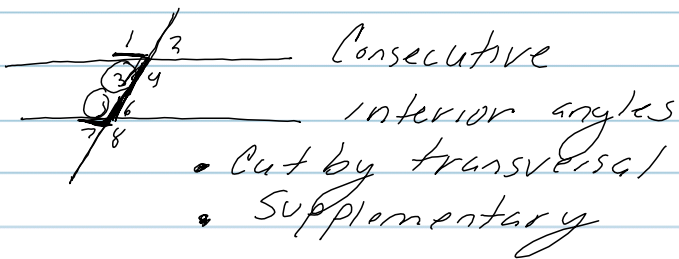 1 2
3 4
5 6
7 8
Consecutive
interior angles
• Cut by transversal
• Supplementary